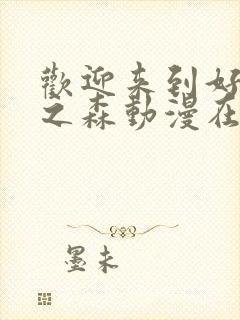 歡迎来到好
之森動漫在
墨未